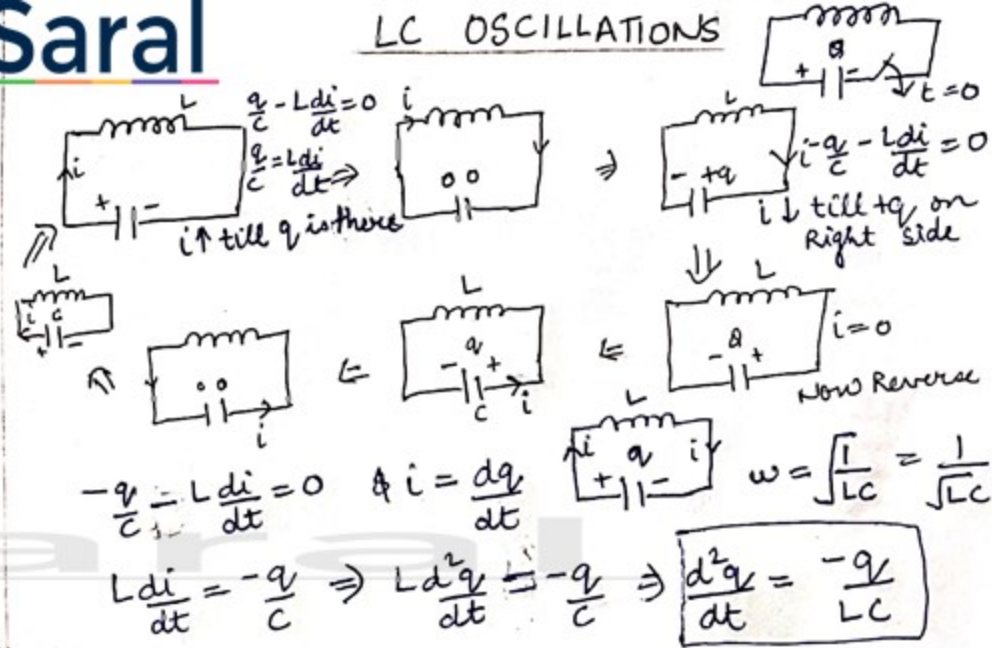 Saral
LC OSCILLATIONS
Q
+ -
t=0
L
q/C - L di/dt = 0
q/C = L di/dt ⇒
i
+ -
i↑ till q is there
i
0 0
⇒
L
i
- +q
-q/C - L di/dt = 0
i ↓ till +q on
Right side
⇓
L
Q
- +
i=0
Now Reverse
⇐
L
q
- +
C
i
⇐
0 0
i
L
i C
+ -
L
i q i
+ -
ω = √(1/LC) = 1/√LC
-q/C - L di/dt = 0 & i = dq/dt
L di/dt = -q/C ⇒ L d²q/dt = -q/C ⇒ d²q/dt = -q/LC
aral